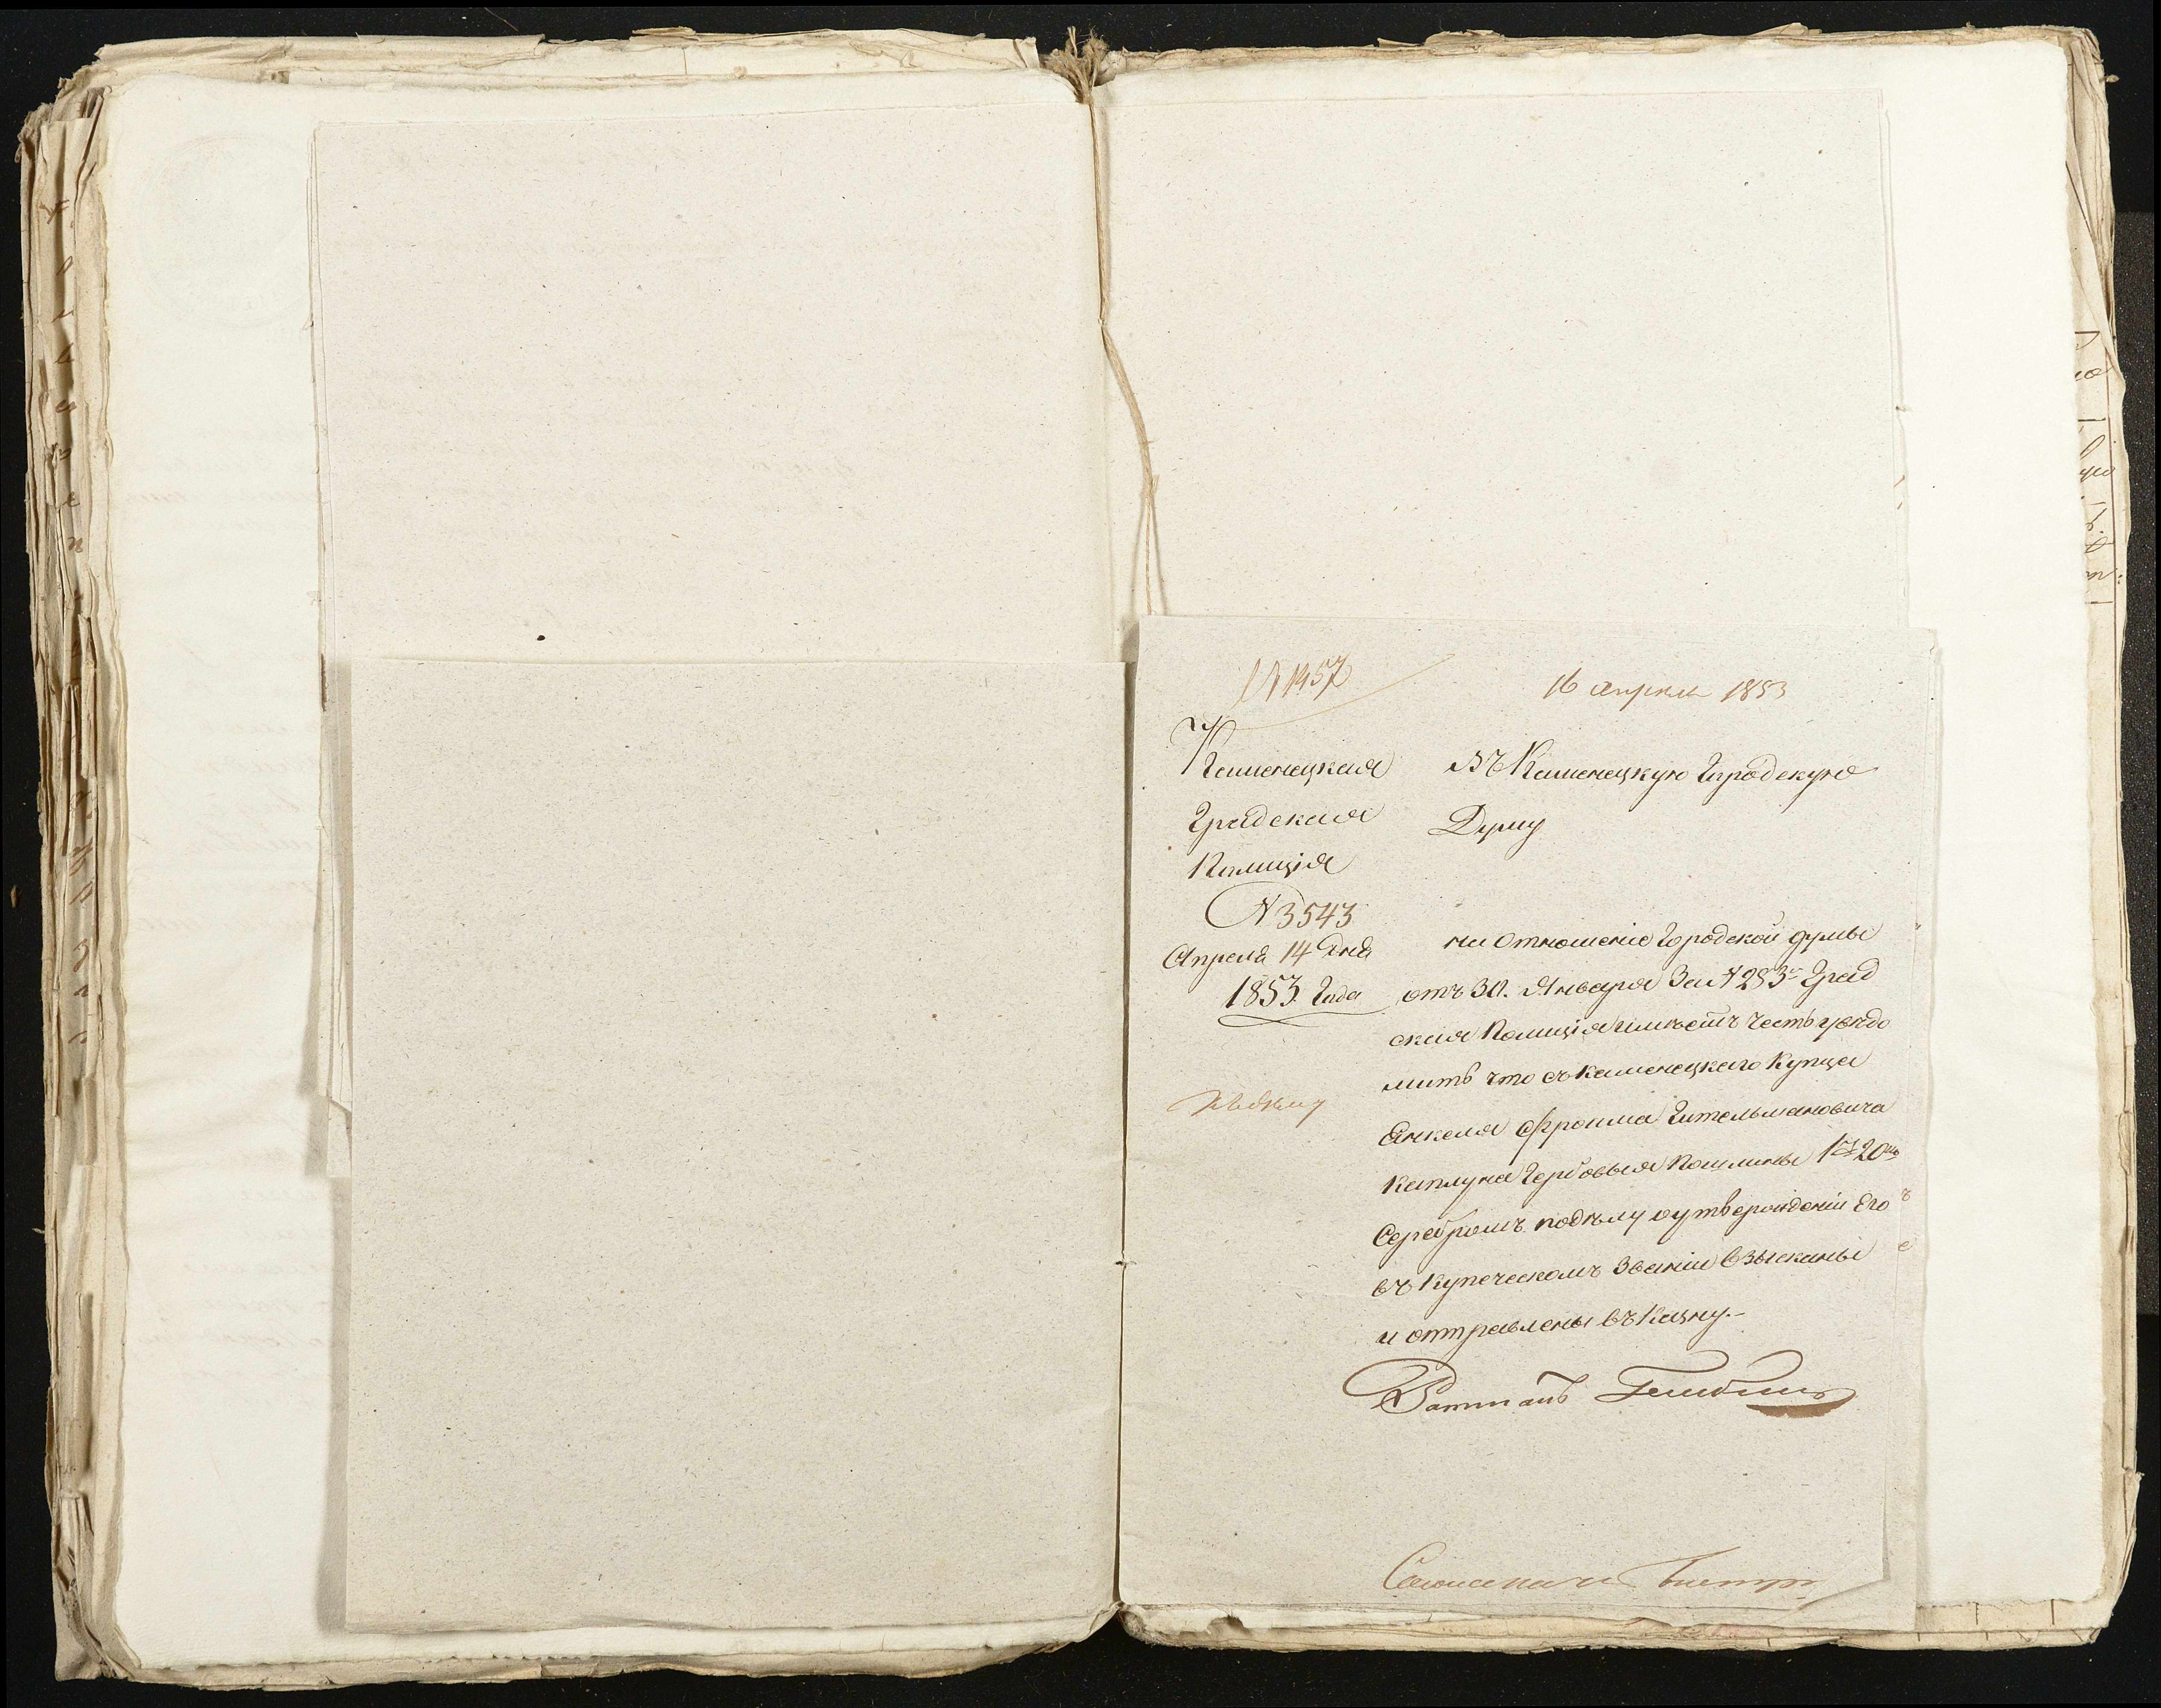 N 1957
16 апреля 1853
Каменецкая
Градская
Полиція
N 3543
Апреля 14 дня
1853 Года
Въ Каменецкую Городскую
Думу
на отношеніе Городской думы
отъ 30. Января За N 283 Град
ская Полиція имѣетъ честь увѣдо
мить что съ каменецкаго Купца
Янкеля Фроима Гительмановича
Каплуна Гербовыя Пошлины 1 р 20 к
Серебромъ по дѣлу о утвержденіи Его
въ Купеческомъ Званіи взысканы
и отправлены въ Казну.-
къ дѣлу
Ратманъ